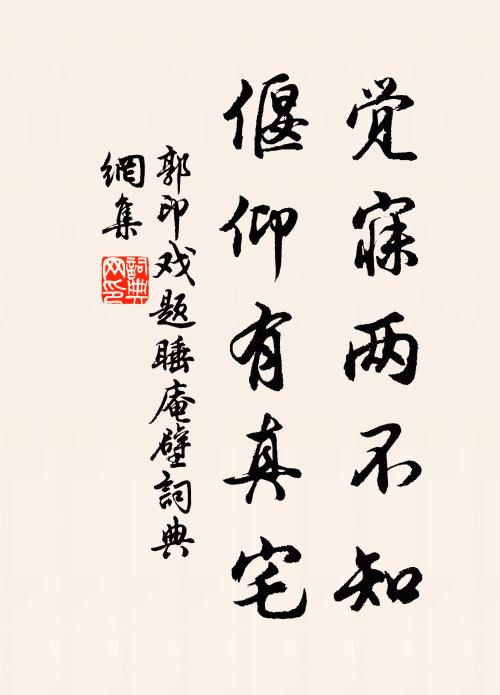 觉寐两不知
偃仰有真宅
郭印戏题睡庵壁詞典
網集
詞典網印